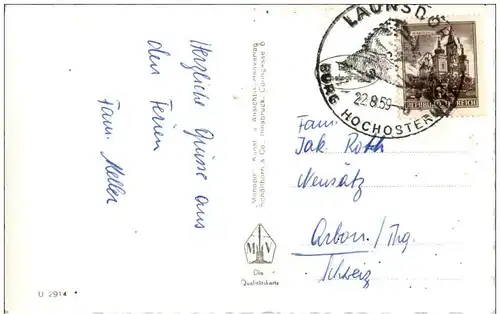 Herzliche Grüsse aus
den Ferien
Fam. Meller
Monopol - Kunst- u. Ansichtskarten
Schöllhorn & Co., Innsbruck,
M V
Die
Qualitätskarte
U 2914
LAUNSDO
BURG HOCHOSTER
22.8.59
REPUBLIK ÖSTERREICH
Fam.
Jak. Roth
Neusätz
Arbon / Thg.
Schweiz